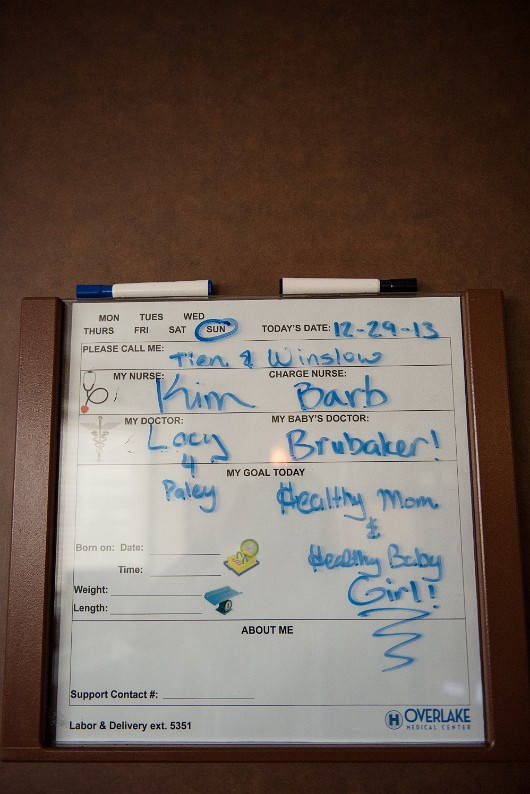 MON TUES WED
THURS FRI SAT SUN
TODAY'S DATE: 12-29-13
PLEASE CALL ME: Tien & Winslow
MY NURSE: Kim
CHARGE NURSE: Barb
MY DOCTOR: Lacy
&
Paley
MY BABY'S DOCTOR: Brubaker!
MY GOAL TODAY
Healthy Mom
&
Healthy Baby
Girl!
Born on: Date:
Time:
Weight:
Length:
ABOUT ME
Support Contact #:
Labor & Delivery ext. 5351
H OVERLAKE
MEDICAL CENTER